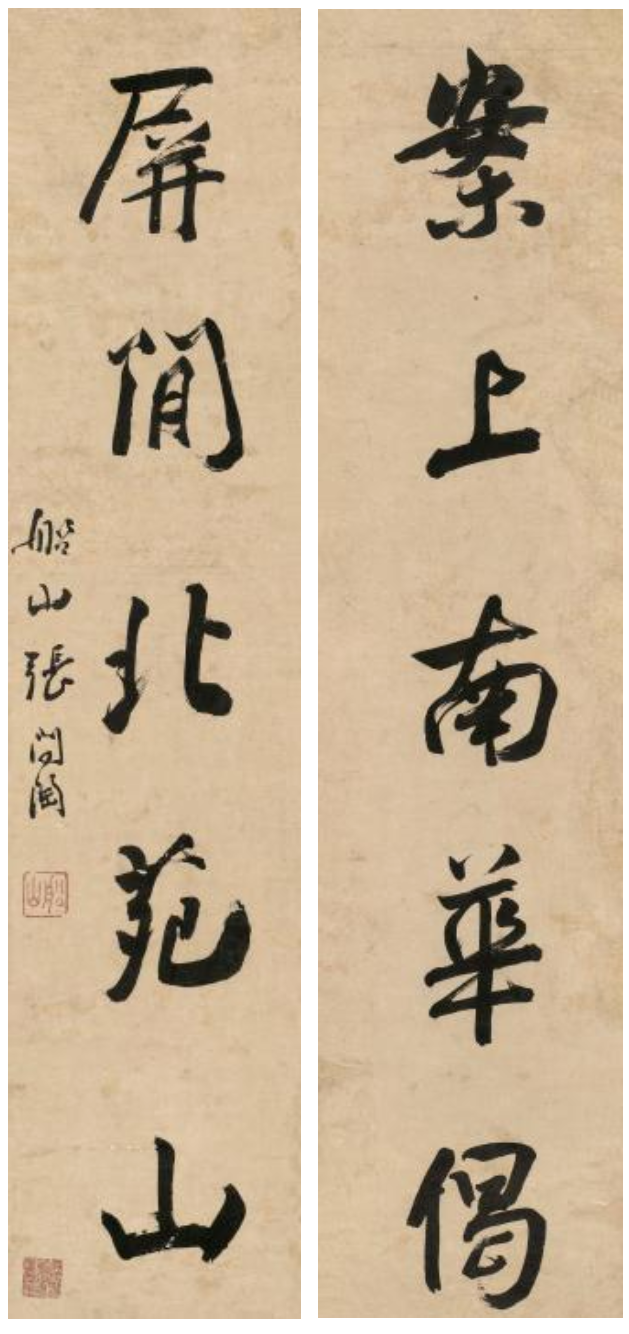 案上南華偈
屏間北苑山
船山張問陶
船山